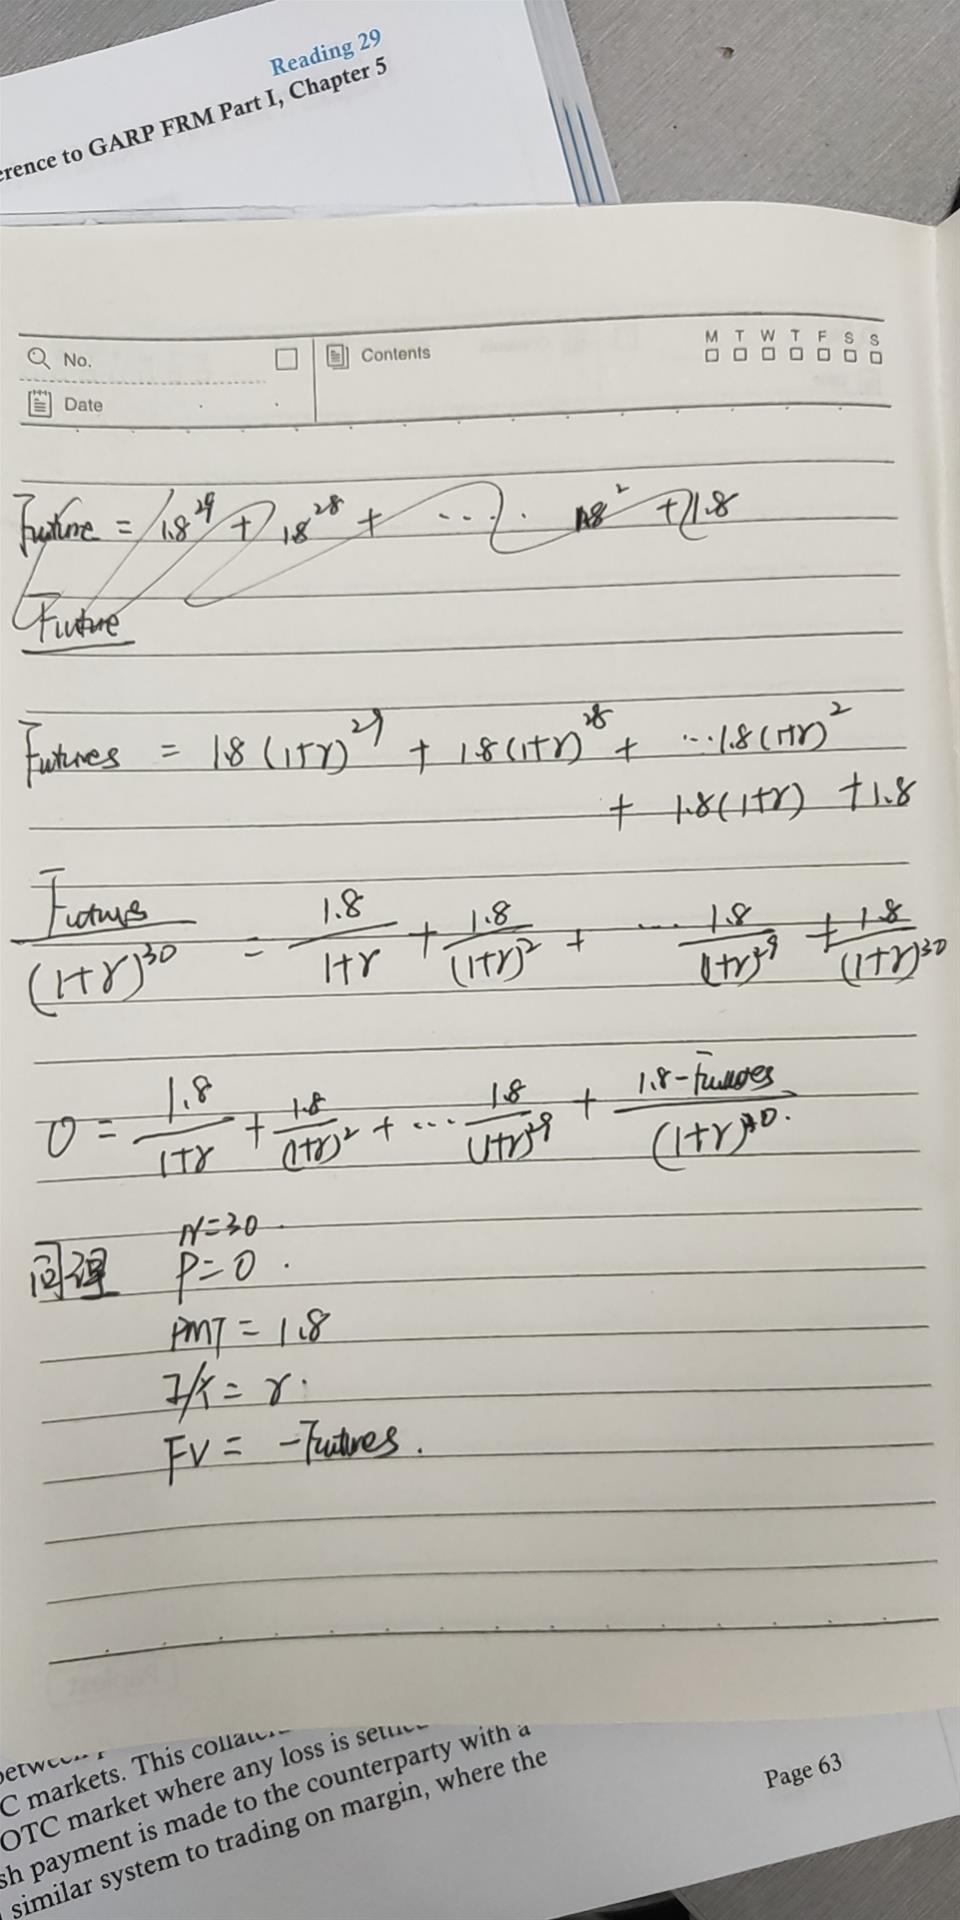 Reading 29
erence to GARP FRM Part I, Chapter 5
No.
Contents
M T W T F S S
Date
Future = 1.8^29 + 1.8^28 + ..... 1.8^2 + 1.8
Future
Futures = 1.8 (1+r)^29 + 1.8 (1+r)^28 + ...1.8 (1+r)^2
+ 1.8 (1+r) + 1.8
Futures/(1+r)^30 = 1.8/1+r + 1.8/(1+r)^2 + ... 1.8/(1+r)^29 + 1.8/(1+r)^30
0 = 1.8/1+r + 1.8/(1+r)^2 + ... 1.8/(1+r)^29 + 1.8-Futures/(1+r)^30.
N=30.
同理 P=0.
PMT = 1.8
I/Y = r.
FV = -Futures.
C markets. This
OTC market where any loss is
sh payment is made to the counterparty with a
similar system to trading on margin, where the
Page 63